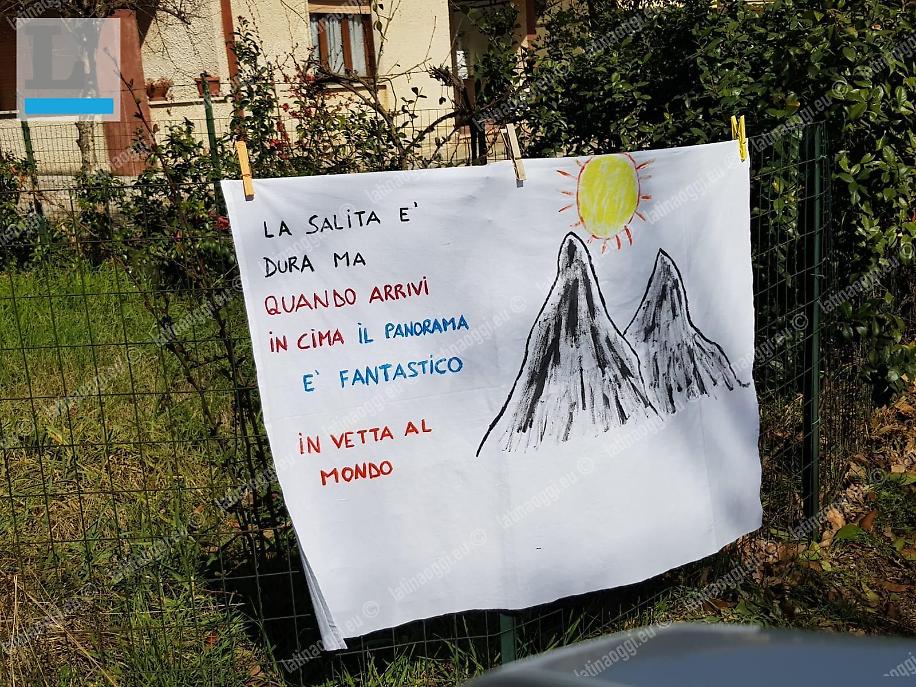 LA SALITA E'
DURA MA
QUANDO ARRIVI
IN CIMA IL PANORAMA
E' FANTASTICO
IN VETTA AL
MONDO
L
latinaoggi.eu ©